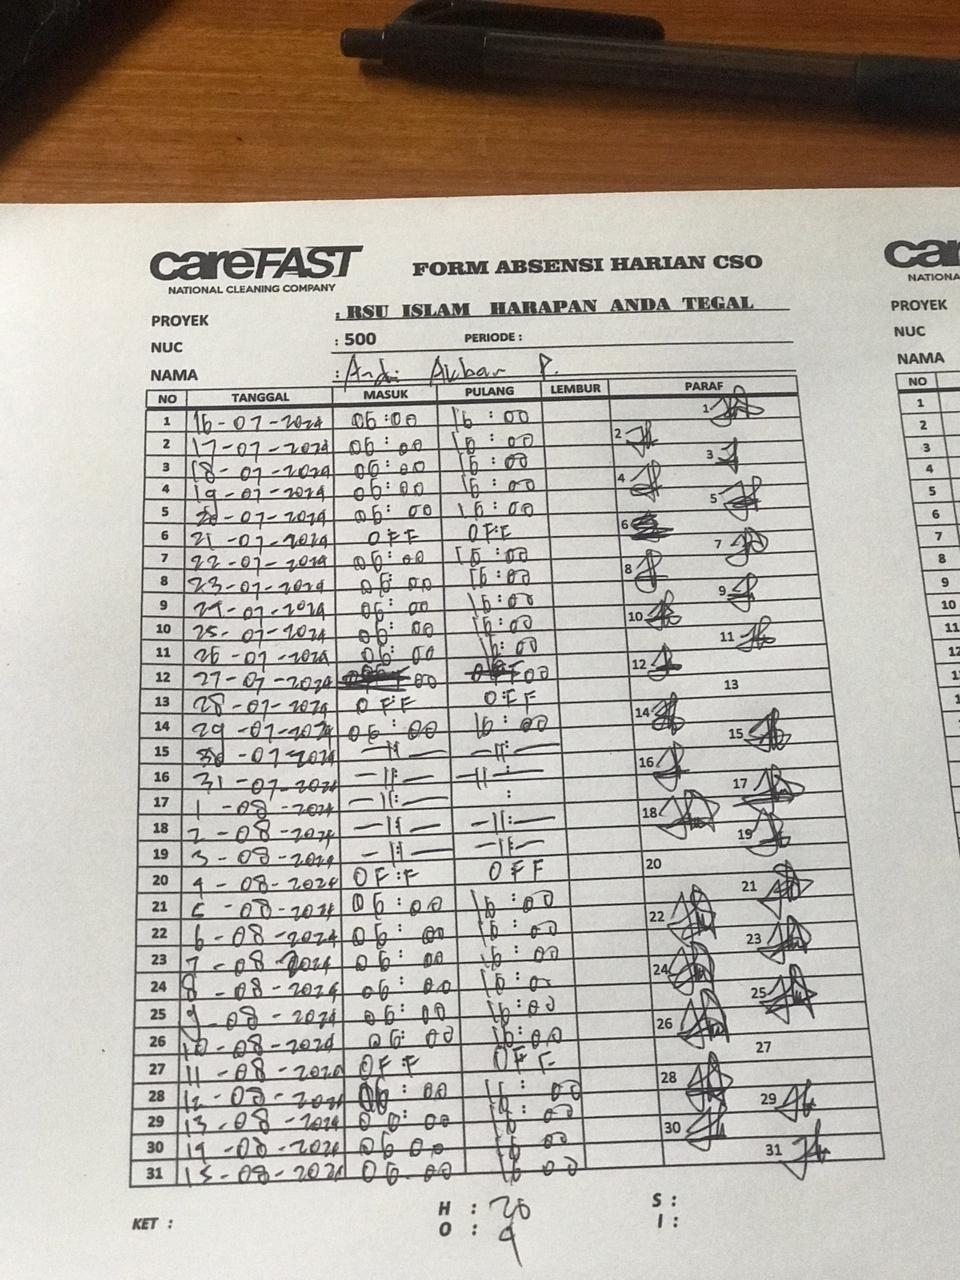 careFAST
NATIONAL CLEANING COMPANY
FORM ABSENSI HARIAN CSO
PROYEK : RSU ISLAM HARAPAN ANDA TEGAL
NUC : 500 PERIODE :
NAMA : Andi Akbar P.
NO TANGGAL MASUK PULANG LEMBUR PARAF
1 16-07-2024 06:00 16:00 1
2 17-07-2024 06:00 16:00 2
3 18-07-2024 06:00 16:00 3
4 19-07-2024 06:00 16:00 4
5 20-07-2024 06:00 16:00 5
6 21-07-2024 OFF OFF 6
7 22-07-2024 06:00 16:00 7
8 23-07-2024 06:00 16:00 8
9 24-07-2024 06:00 16:00 9
10 25-07-2024 06:00 16:00 10
11 26-07-2024 06:00 16:00 11
12 27-07-2024 00 00 12
13 28-07-2024 OF:F O:FF 13
14 29-07-2024 06:00 16:00 14
15 30-07-2024 —||— —||:— 15
16 31-07-2024 —||:— —||— : 16
17 1-08-2024 —||:— : 17
18 2-08-2024 —||— —||:— 18
19 3-08-2024 —||— —||— 19
20 4-08-2024 OF:F OFF 20
21 5-08-2024 06:00 16:00 21
22 6-08-2024 06:00 16:00 22
23 7-08-2024 06:00 16:00 23
24 8-08-2024 06:00 16:00 24
25 9-08-2024 06:00 16:00 25
26 10-08-2024 06:00 16:00 26
27 11-08-2024 OF:F OFF 27
28 12-08-2024 06:00 16:00 28
29 13-08-2024 00 16:00 29
30 14-08-2024 06 00 16 00 30
31 15-08-2024 06 00 16 00 31
KET : H : 26 S :
O : 4 I :
CA
NATIONA
PROYEK
NUC
NAMA
NO
1
2
3
4
5
6
7
8
9
10
11
12